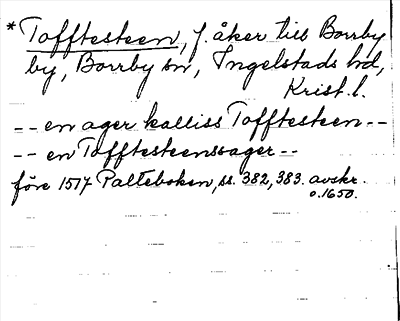 *Tofftesteen, f. åker till Borrby
by, Borrby sn, Ingelstads hd,
Krist. l.
-- en ager kalliss Tofftesteen --
-- en Tofftesteenssager --
före 1517 Palteboken, ss. 382, 383. avskr.
o. 1650.